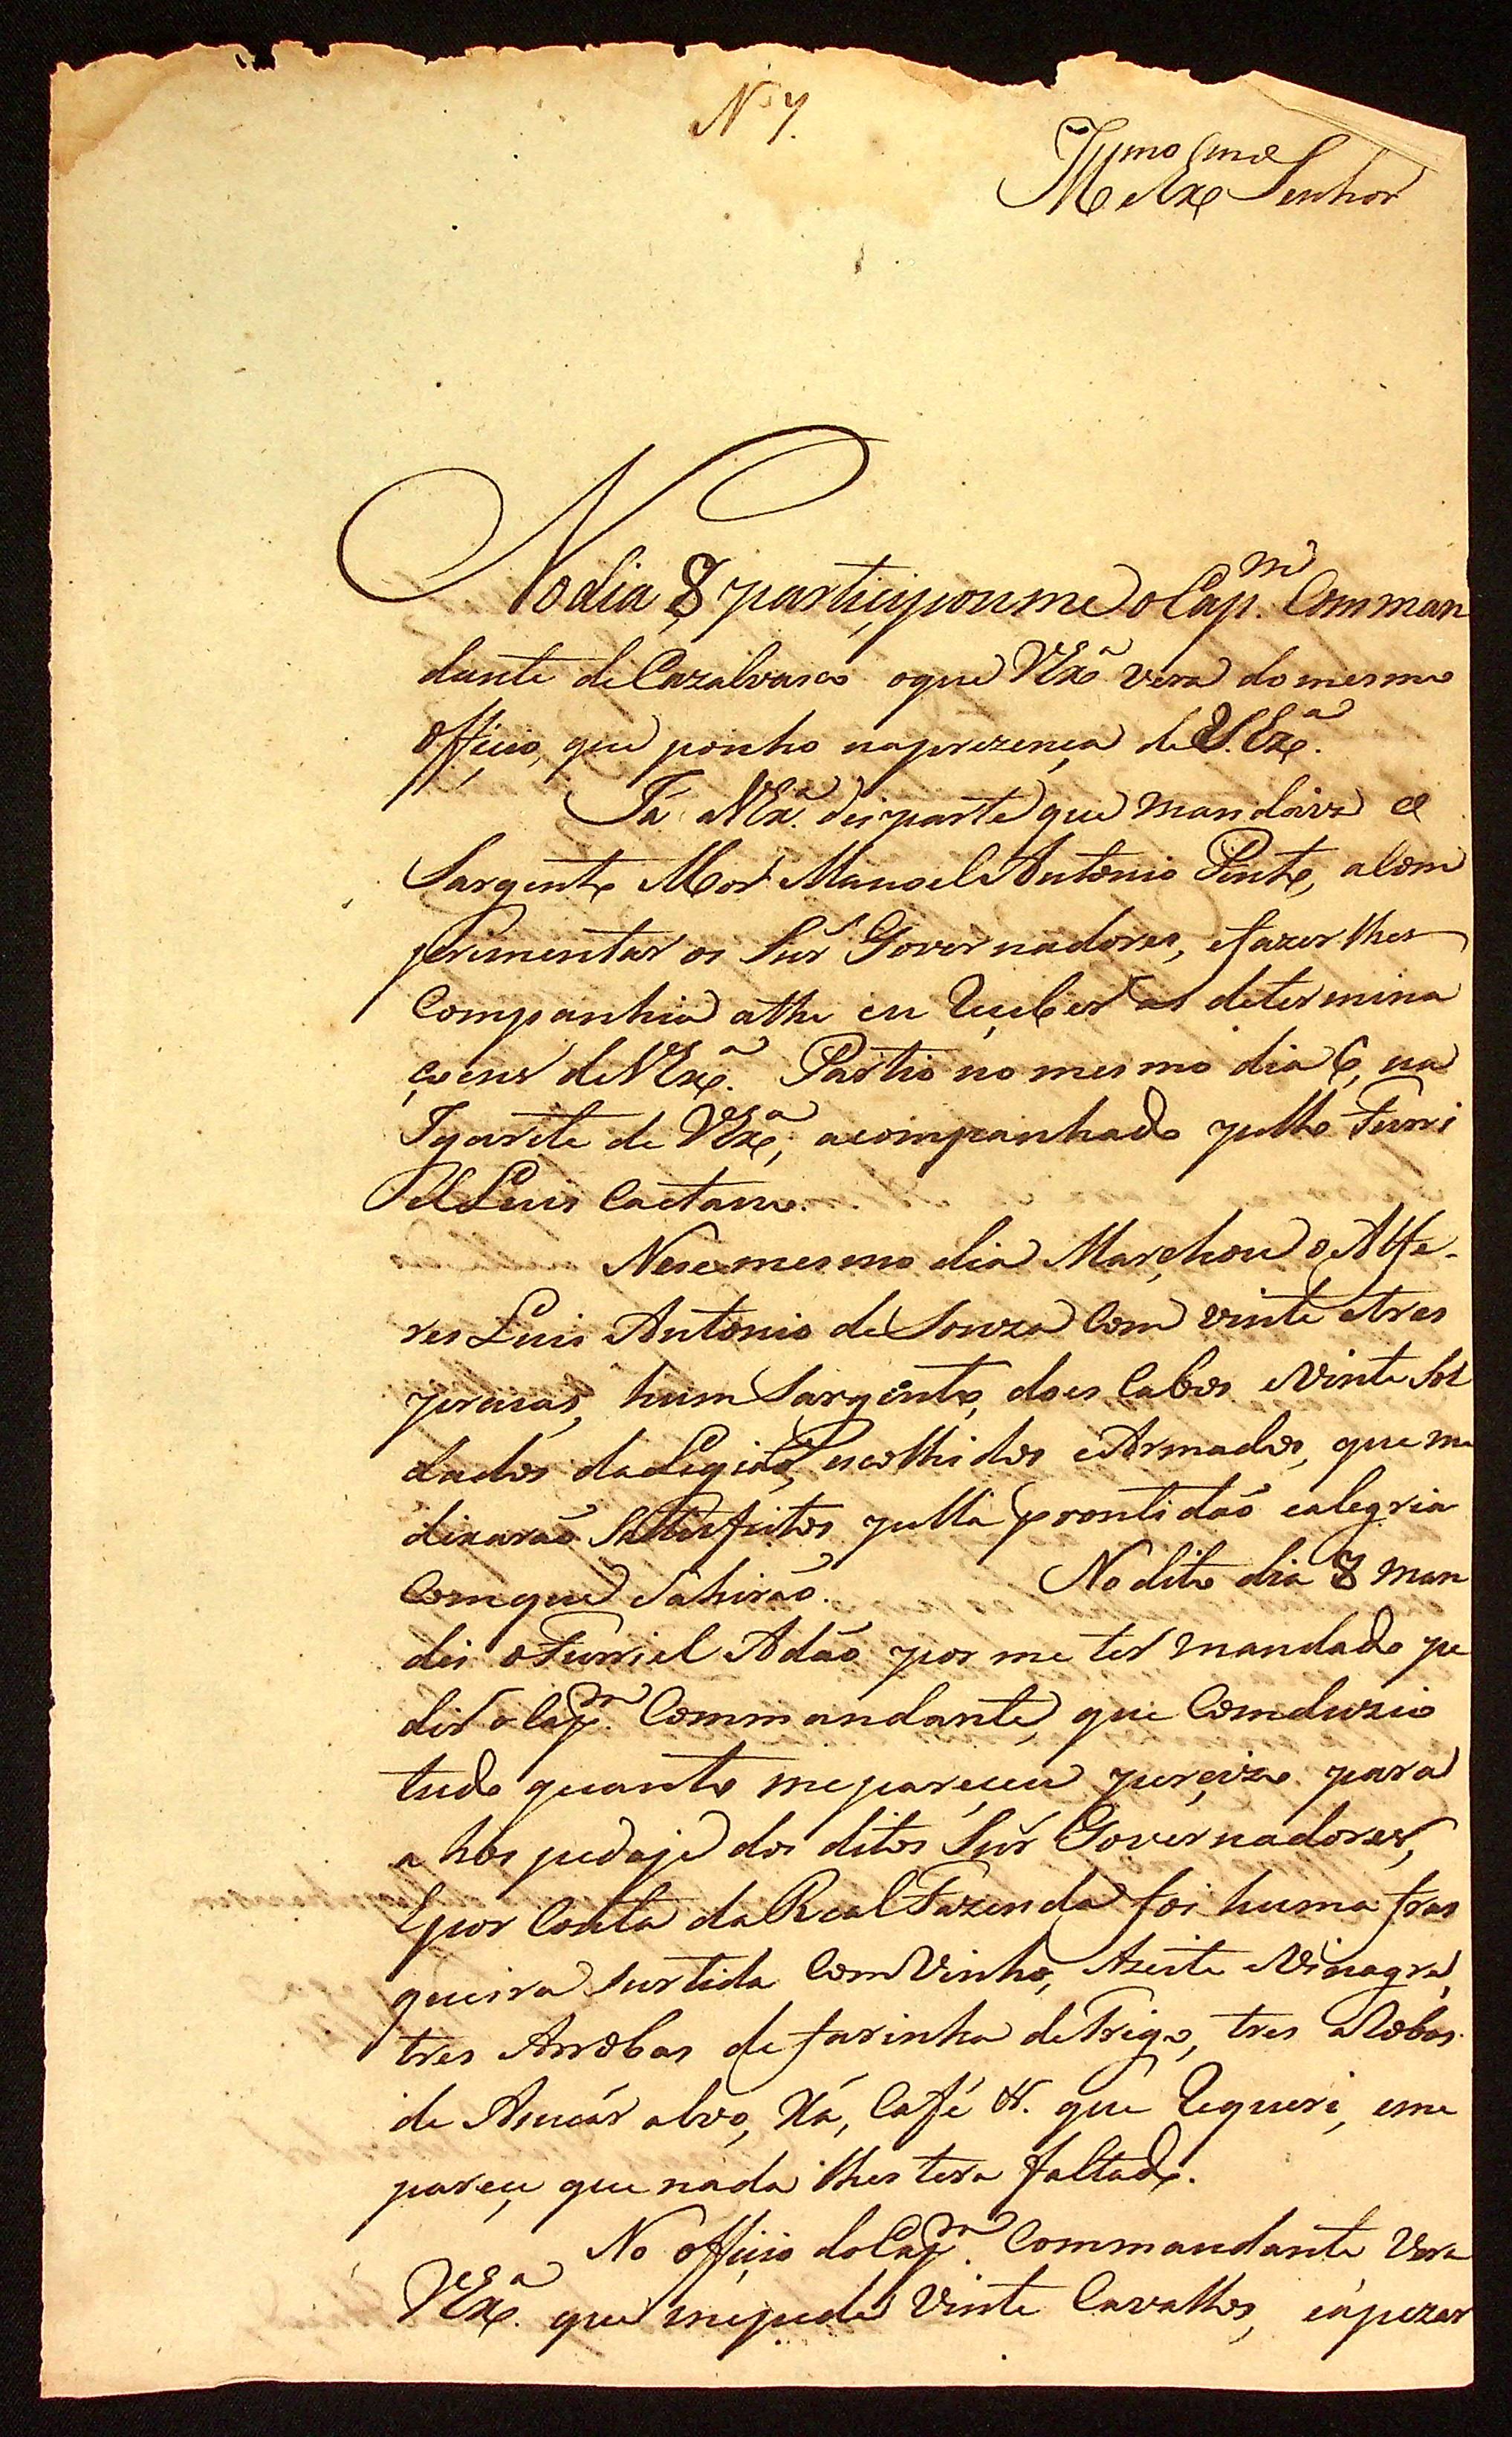 N.º 7.
Ill.mo e Ex.mo Senhor
No dia 8 participoume o Cap.m Comman
dante de Cazalvasco oque VEx.a vera do mesmo
Officio, que ponho naprezença de V.Ex.a
Já a VEx.a dei parte que mandára o
Sargento Mor Manoel Antonio Pinto, a Com
primentar os Sn.r Governadores, efazer lhes
Companhia athe eu Receber as determina
çoens de VEx.a. Partio no mesmo dia 6, na
Igarite de VEx.a, acompanhado pello Furri
el Luis Caetano.
Nese mesmo dia Marchou o Alfe-
res Luis Antonio de Souza Com vinte etres
pracas, hum Sargento, does Cabos eVinte Sol
dados daLegião, escolhidos eArmados, que me
dixarão Satisfeitos pella prontidão ealegria
Comque Sahirão. No dito dia 8 man
dei o Furriel Adão por me ter mandado pe
dir o Cap.m Commandante, que Comduzio
tudo quanto mepareçeu perçizo para
a hospedaje dos ditos Sn.r Governadores,
Epor Conta daReal Fazenda foi huma fras
queira Surtida ComVinho, Azeite eVinagre,
tres Arrobas de farinha deTrigo, tres aRobas
de Asucár alvo, Xá, Café &. que Requeri, eme
pareçe, que nada lhes tera faltado.
No offiçio doCap.m Commandante Vera
VEx.a que mepede Vinte Cavallos, eapezar